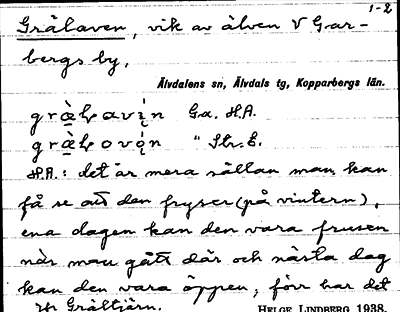 1-2
Grälaven, vik av älven V Gar-
bergs by.
Älvdalens sn, Älvdals tg, Kopparbergs län.
H.A.
H.A.: det är mera sällan man kan
få se att den fryser (på vintern),
ena dagen kan den vara frusen
när man gått där och nästa dag
kan den vara öppen, förr har det
Grältjärn.
HELGE LINDBERG 1938.